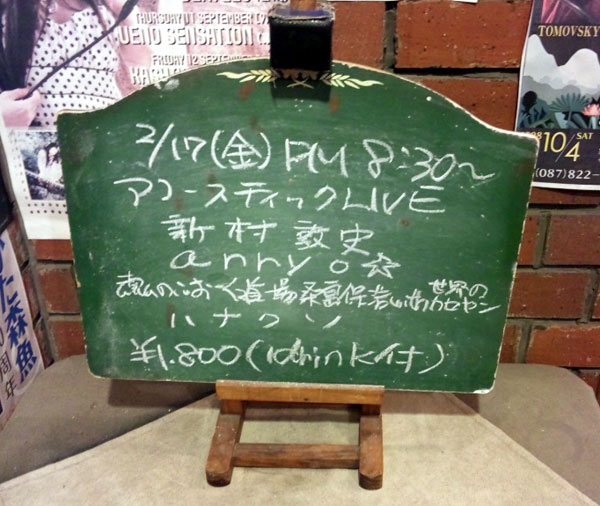 THURSDAY 11 SEPTEMBER
UENO SENSATION
FRIDAY 12 SEPTEMBER
TOMOVSKY
10/4 SAT
(087)822-
森魚
周年
2/17(金) PM 8:30~
アコースティックLIVE
新村敦史
annyo☆
世界の
ハナクソ
¥1.800(1drink付)